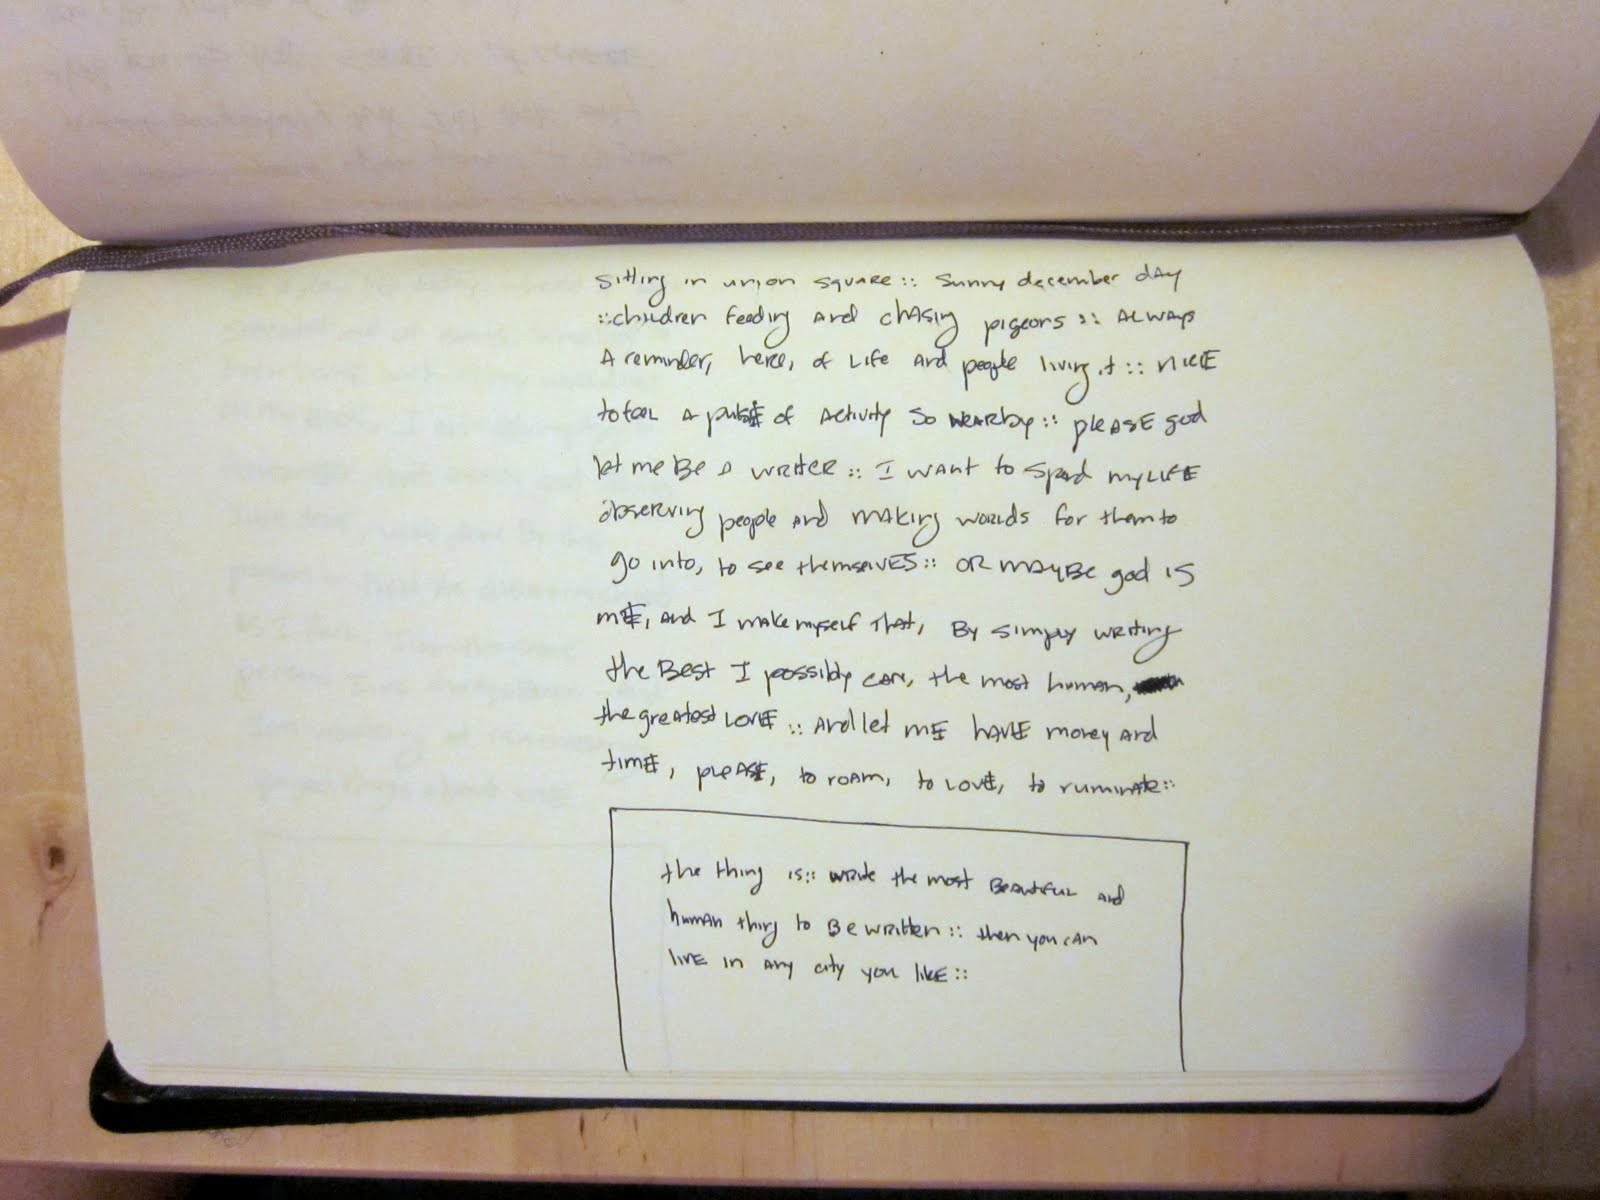 sitting in union square:: sunny december day
::children feeding and chasing pigeons:: always
a reminder, here, of life and people living it:: nice
to feel a pulse of activity so nearby:: please god
let me be a writer:: I want to spend my life
observing people and making worlds for them to
go into, to see themselves:: or maybe god is
me, and I make myself that, by simply writing
the best I possibly can, the most human,
the greatest love:: and let me have money and
time, please, to roam, to love, to ruminate::
the thing is:: write the most beautiful and
human thing to be written:: then you can
live in any city you like::